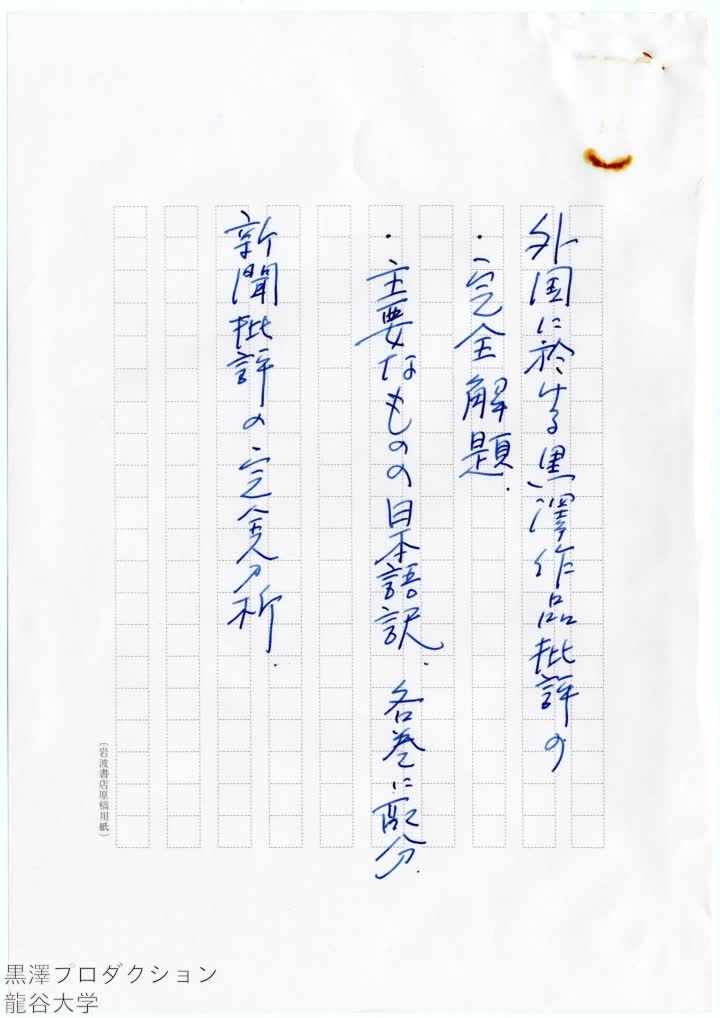 外国に於ける黒澤作品批評の
・完全解題.
・主要なものの日本語訳. 各巻に配分.
新聞批評の完全分析.
(岩波書店原稿用紙)
黒澤プロダクション
龍谷大学